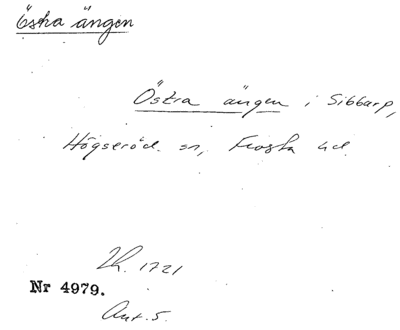 Östra ängen
Östra ängen i Sibbarp,
Högseröd sn, Frosta hd.
Lh. 1721
Nr 4979.
Ant. 5.